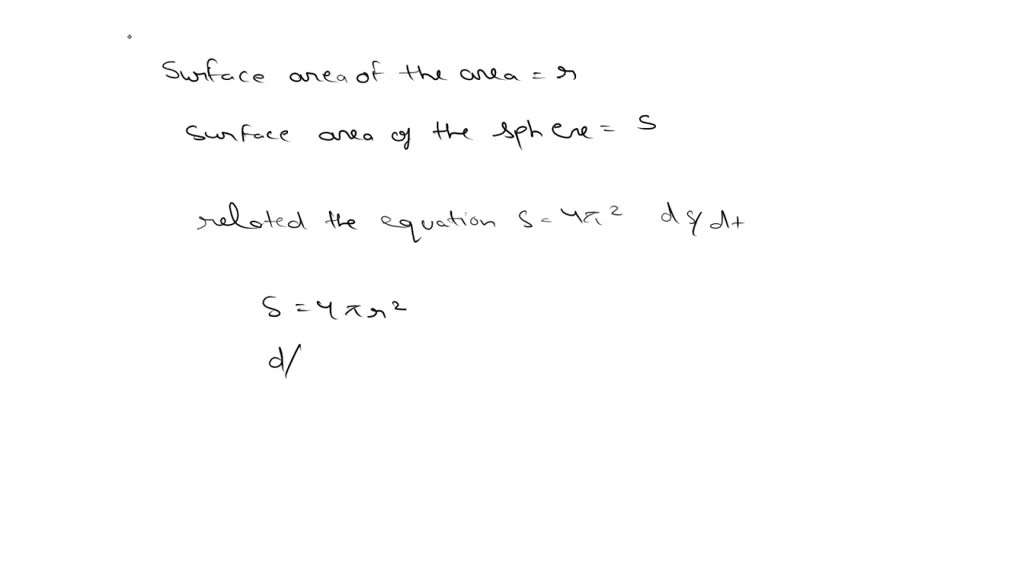 Surface area of the area = r
Surface area of the sphere = S
related the equation S = 4π² ds/dt
S = 4πr²
d/